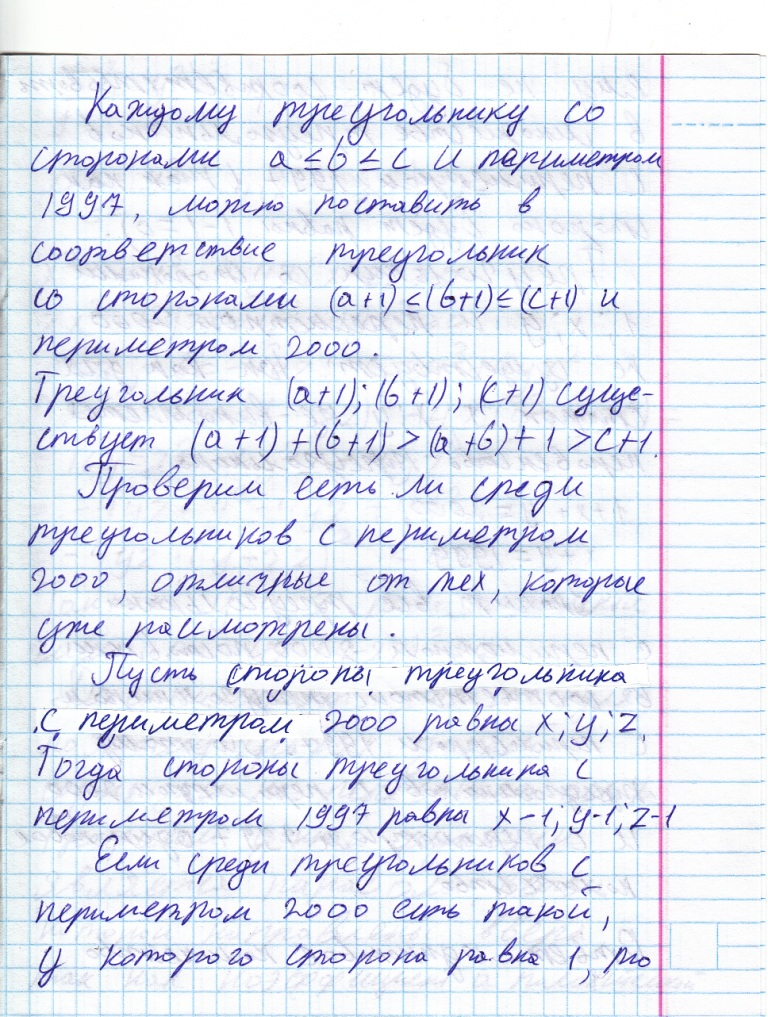 Каждому треугольнику со
сторонами a ≤ b ≤ c и периметром
1997, можно поставить в
соответствие треугольник
со сторонами (a+1) ≤ (b+1) ≤ (c+1) и
периметром 2000.
Треугольник (a+1); (b+1); (c+1) суще-
ствует (a+1)+(b+1) > (a+b)+1 > c+1.
Проверим есть ли среди
треугольников с периметром
2000, отличные от тех, которые
уже расмотрены.
Пусть стороны треугольника
с периметром 2000 равны x; y; z.
Тогда стороны треугольника с
периметром 1997 равны x-1; y-1; z-1
Если среди треугольников с
периметром 2000 есть такой,
у которого сторона равна 1, то